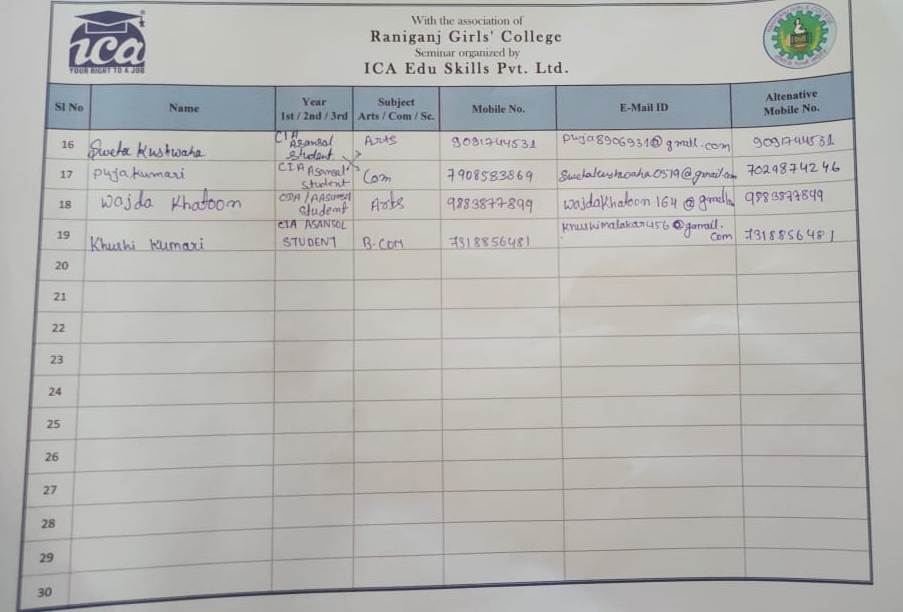 ica
YOUR RIGHT TO A JOB
With the association of
Raniganj Girls' College
Seminar organized by
ICA Edu Skills Pvt. Ltd.
Sl No Name Year 1st / 2nd / 3rd Subject Arts / Com / Sc. Mobile No. E-Mail ID Altenative Mobile No.
16 Sweta Kushwaha CIA Asansol student Arts 9091744531 puja8906931@gmail.com 9091744531
17 Puja kumari CIA Asansol student Com 7908583869 swetakushwaha0519@gmail.com 7029874246
18 Wajda Khatoon student Arts 9883877899 wajdakhatoon164@gmail. 9883877899
19 Khushi kumari CIA ASANSOL STUDENT B.COM 7318856481 khushimalakar456@gamail.com 7318856481
20
21
22
23
24
25
26
27
28
29
30